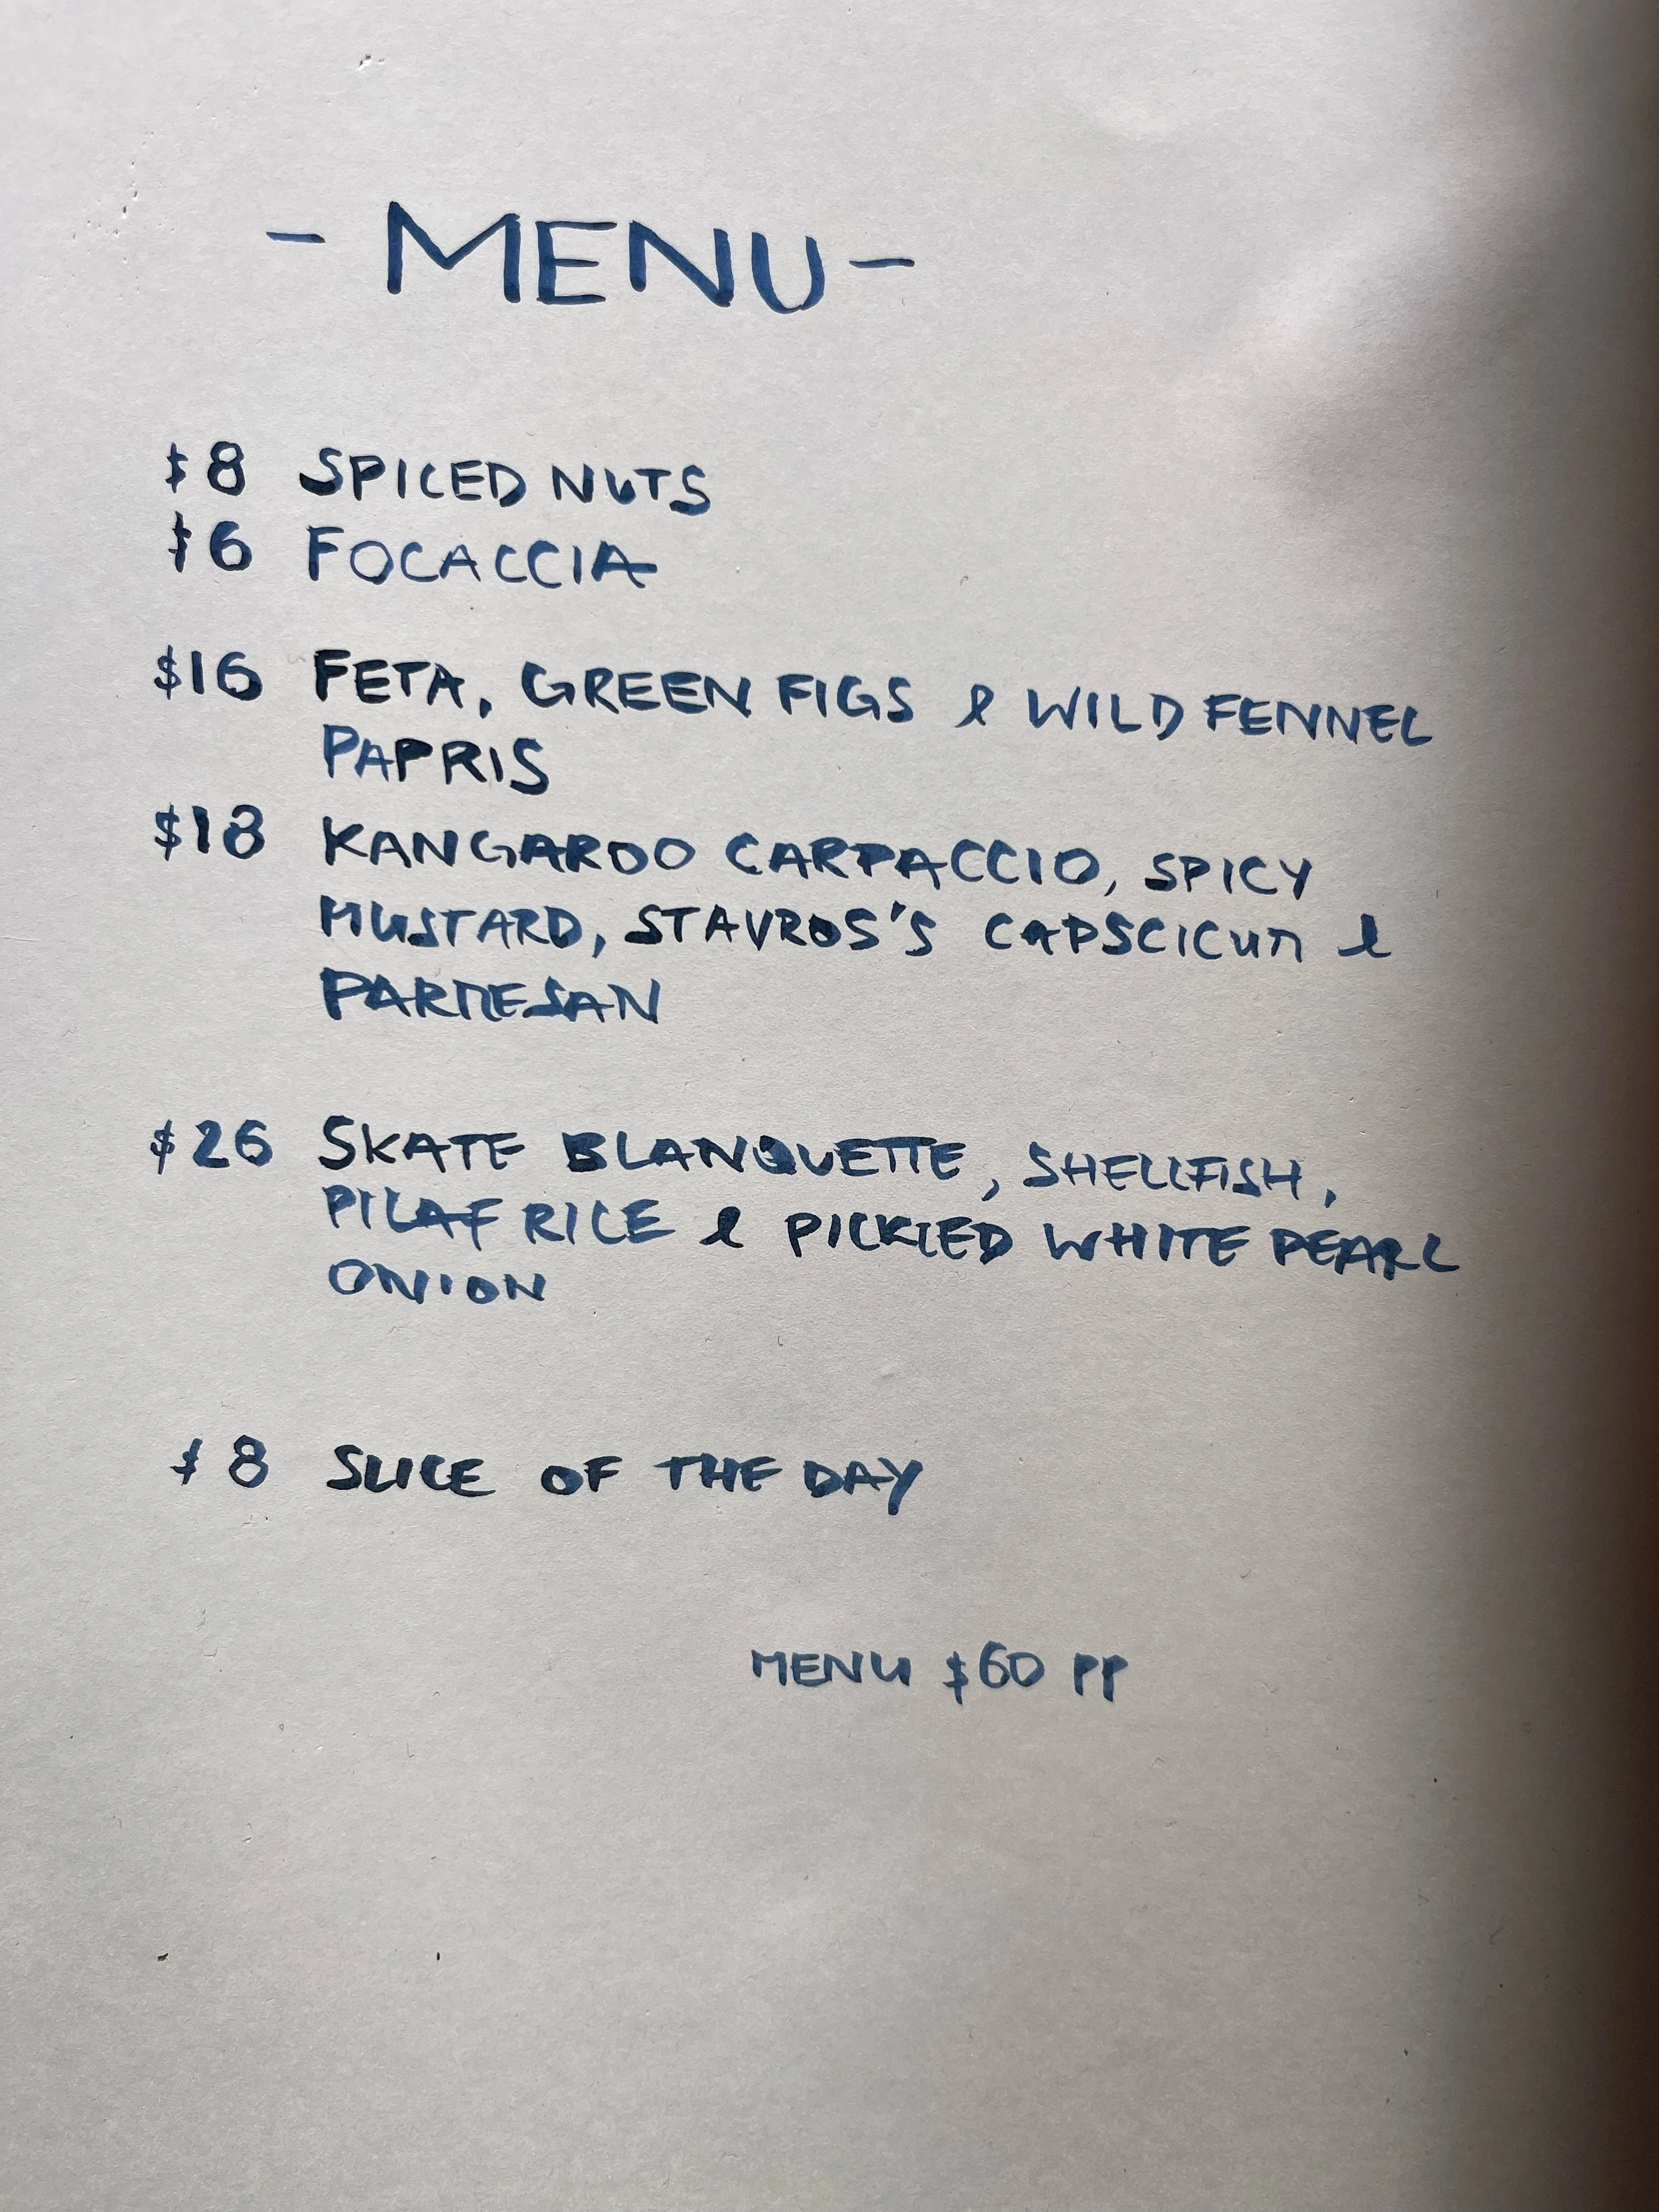 - MENU -
$8 SPICED NUTS
$6 FOCACCIA
$16 FETA, GREEN FIGS & WILD FENNEL
PAPRIS
$18 KANGAROO CARPACCIO, SPICY
MUSTARD, STAVROS'S CAPSCICUM &
PARMESAN
$26 SKATE BLANQUETTE, SHELLFISH,
PILAF RICE & PICKLED WHITE PEARL
ONION
$8 SLICE OF THE DAY
MENU $60 PP